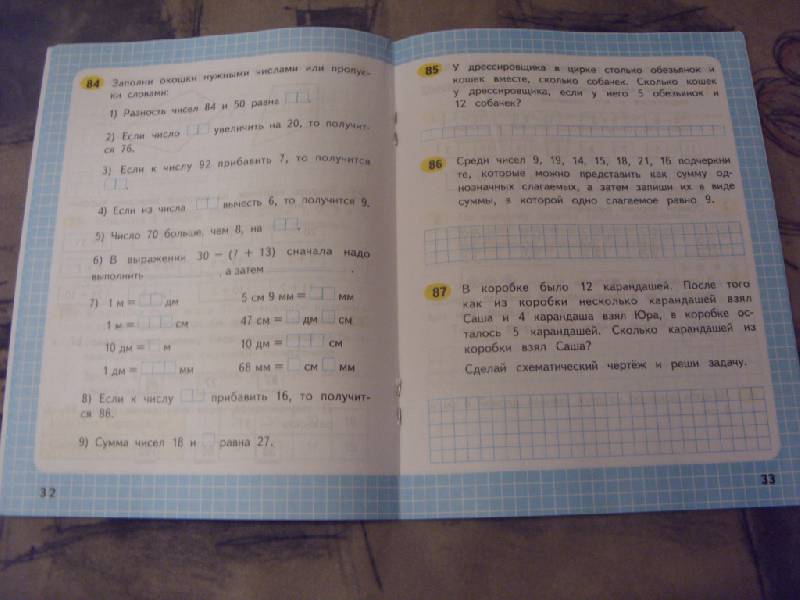 84 Заполни окошки нужными числами или пропус-
ки словами:
1) Разность чисел 84 и 50 равна
2) Если число увеличить на 20, то получит-
ся 76.
3) Если к числу 92 прибавить 7, то получится
.
4) Если из числа вычесть 6, то получится 9.
5) Число 70 больше, чем 8, на .
6) В выражении 30 − (7 + 13) сначала надо
выполнить , а затем .
7) 1 м = дм 5 см 9 мм = мм
1 м = см 47 см = дм см
10 дм = м 10 дм = см
1 дм = мм 68 мм = см мм
8) Если к числу прибавить 16, то получит-
ся 86.
9) Сумма чисел 18 и равна 27.
32
85 У дрессировщика в цирке столько обезьянок и
кошек вместе, сколько собачек. Сколько кошек
у дрессировщика, если у него 5 обезьянок и
12 собачек?
86 Среди чисел 9, 19, 14, 15, 18, 21, 16 подчеркни
те, которые можно представить как сумму од-
нозначных слагаемых, а затем запиши их в виде
суммы, в которой одно слагаемое равно 9.
87 В коробке было 12 карандашей. После того
как из коробки несколько карандашей взял
Саша и 4 карандаша взял Юра, в коробке ос-
талось 5 карандашей. Сколько карандашей из
коробки взял Саша?
Сделай схематический чертёж и реши задачу.
33